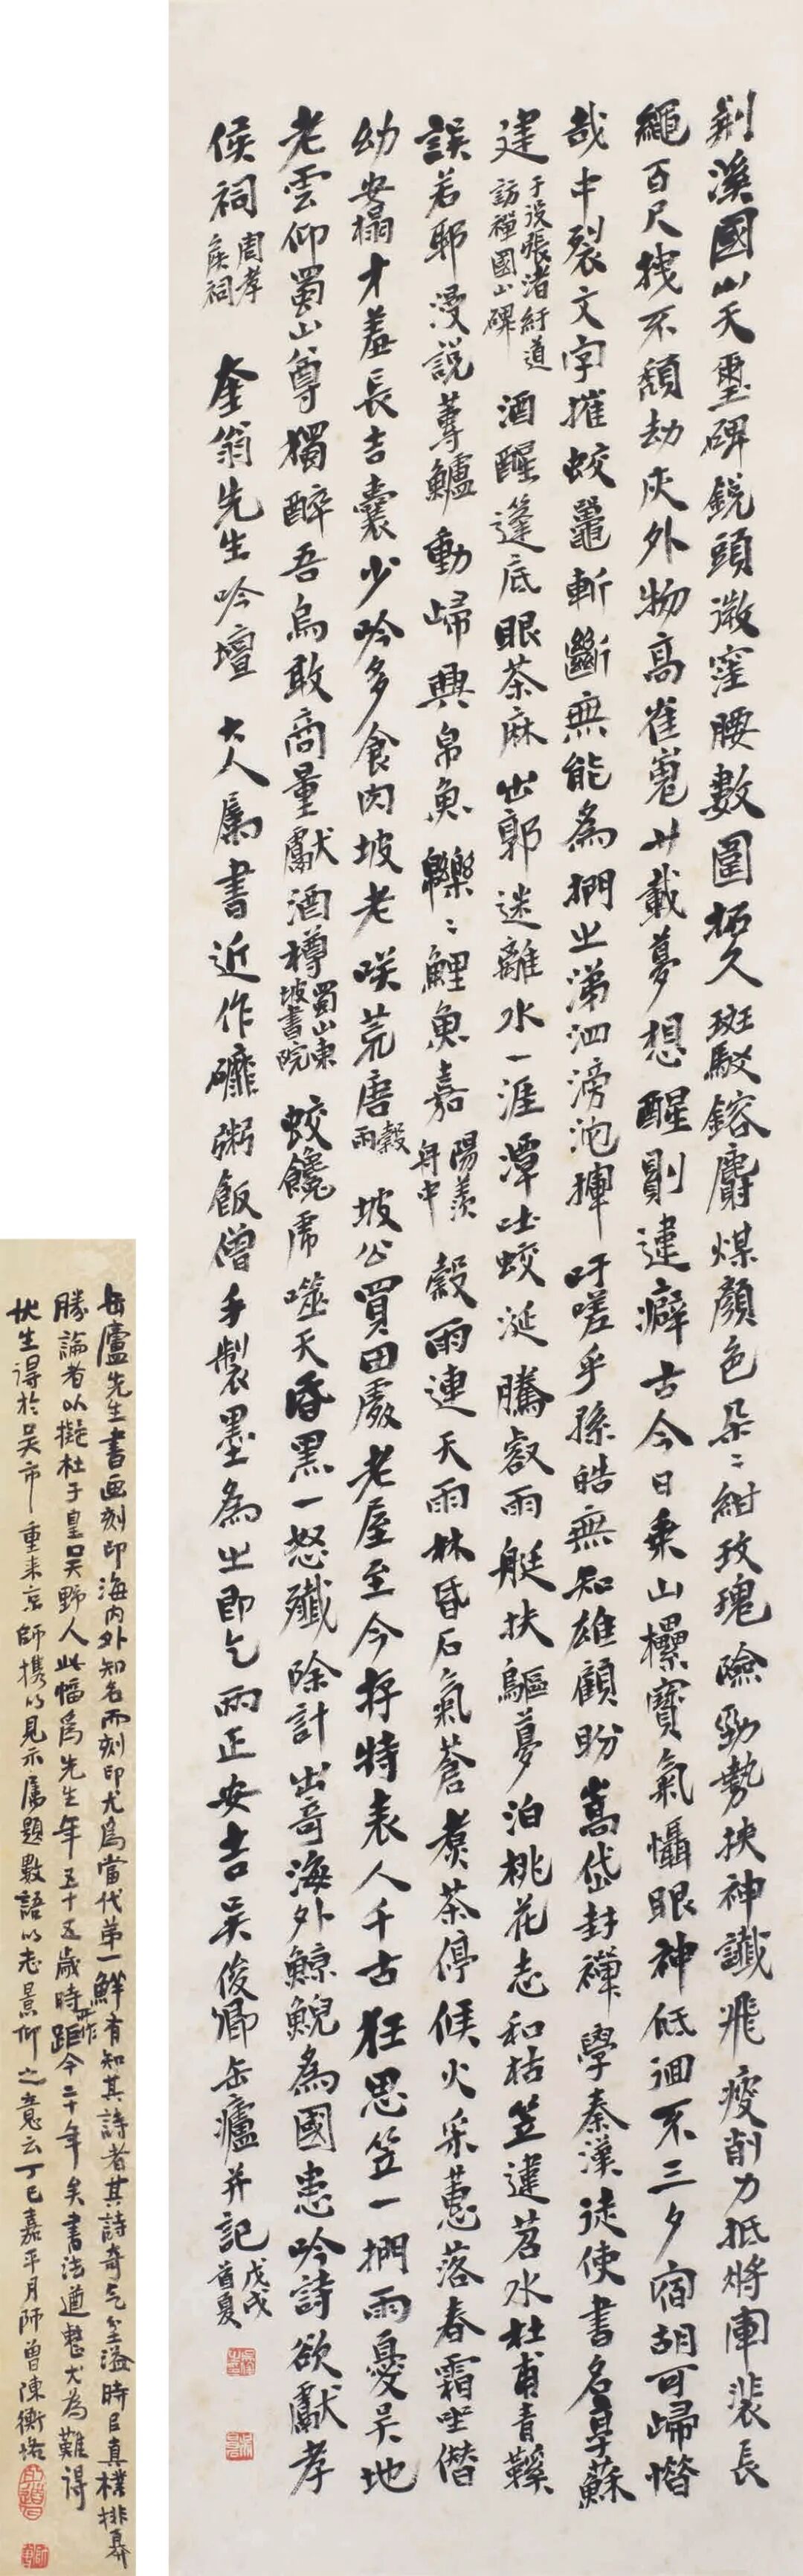 荊溪國山天璽碑銳頭微窪腰數圍拓久斑駁鎔麝煤顏色朵朵紺玫瑰險勁勢挾神讖飛瘦削力抵將軍裴長
繩百尺拽不頹劫灰外物高崔嵬廿載夢想醒則違癖古今日乘山欙寶氣懾眼神低徊不三夕宿胡可歸惜
哉中裂文字摧蛟鼉斬斷無能為捫之涕泗滂沱揮吁嗟乎孫皓無知雄顧盼嵩岱封禪學秦漢徒使書名皐蘇
建
于役張渚紆道
訪禪國山碑
酒醒篷底眼茶麻出郭迷離水一涯潭吐蛟涎騰釵雨艇扶驅夢泊桃花志和枯笠違苕水杜甫青鞵
誤若耶漫說蓴鱸動歸興帛魚轢轢鯉魚嘉
陽羨
舟中
穀雨連天雨林昏石氣蒼煑茶停候火采蕙落春霜坐僭
幼安榻才羞長吉囊少吟多食肉坡老咲荒唐
穀
雨
坡公買田處老屋至今存特表人千古狂思笠一捫雨憂吳地
老雲仰蜀山尊獨醉吾烏敢商量獻酒樽
蜀山東
坡書院
蛟饞虎噬天昏黑一怒殲除計出奇海外鯨鯢為國患吟詩欲獻孝
侯祠
周孝
侯祠
奎翁先生吟壇 大人屬書近作礳粥飯僧手製墨為之即乞兩正安吉吳俊卿缶廬并記
戊戌
首夏
缶廬先生書画刻印海内外知名而刻印尤為當代第一鮮有知其詩者其詩奇气坌溢時臣真樸排奡
勝論者以擬杜于皇吳野人此幅為先生年五十五歲時所作距今二十年矣書法遒整尤為難得
伏生得於吳市重来京師携以見示属題數語以志景仰之意云丁巳嘉平月師曾陳衡恪